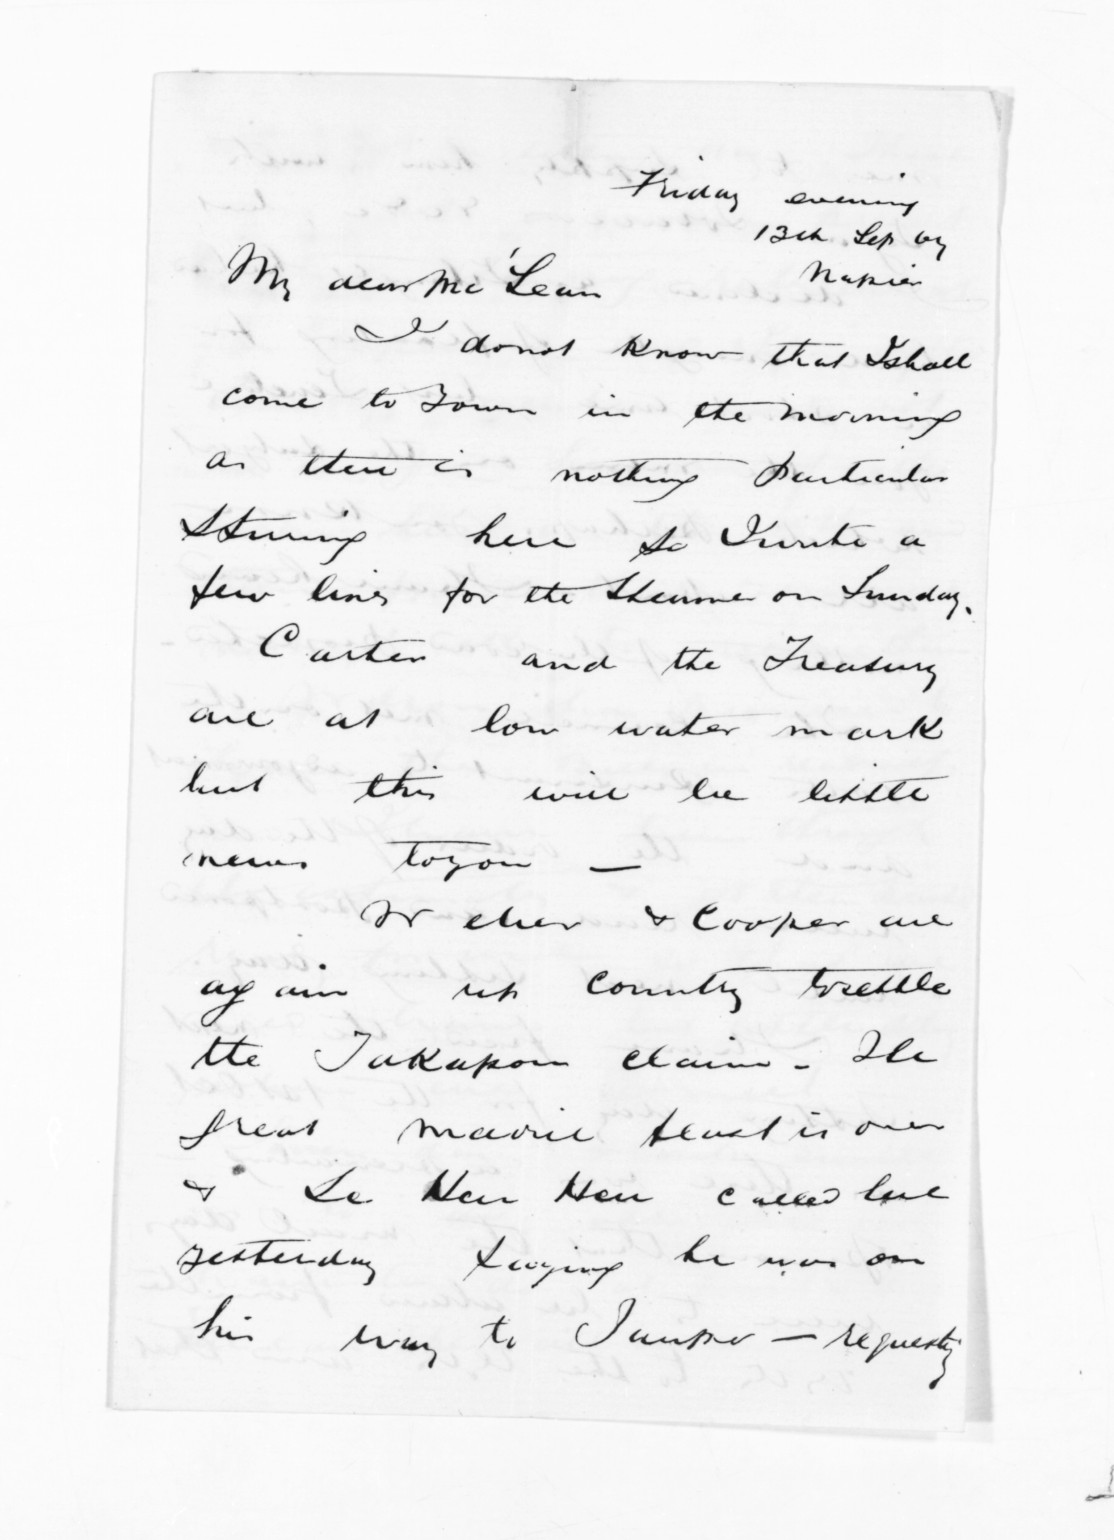 Friday evening
13th Sep 67
Napier
My dear McLean
I do not know that I shall
come to Town in the morning
as there is nothing particular
stirring here so I write a
few lines for the Steamer on Sunday.
Carter and the Treasury
are at low water mark
but this will be little
news to you —
Locke & Cooper are
again up country to settle
the Takapou claim - The
great maorie feast is over
& Te Heu Heu called here
yesterday saying he was on
his way to Taupo — requesting